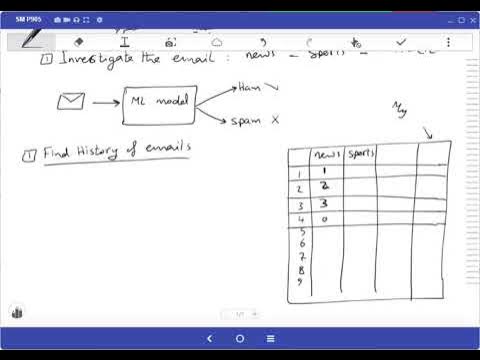 SM P905
1 Investigate the email : news - sports -
ML model
Ham
spam X
1 Find History of emails
My
news sports
1 1
2 2
3 3
4 0
5
6
7
8
9
1/1